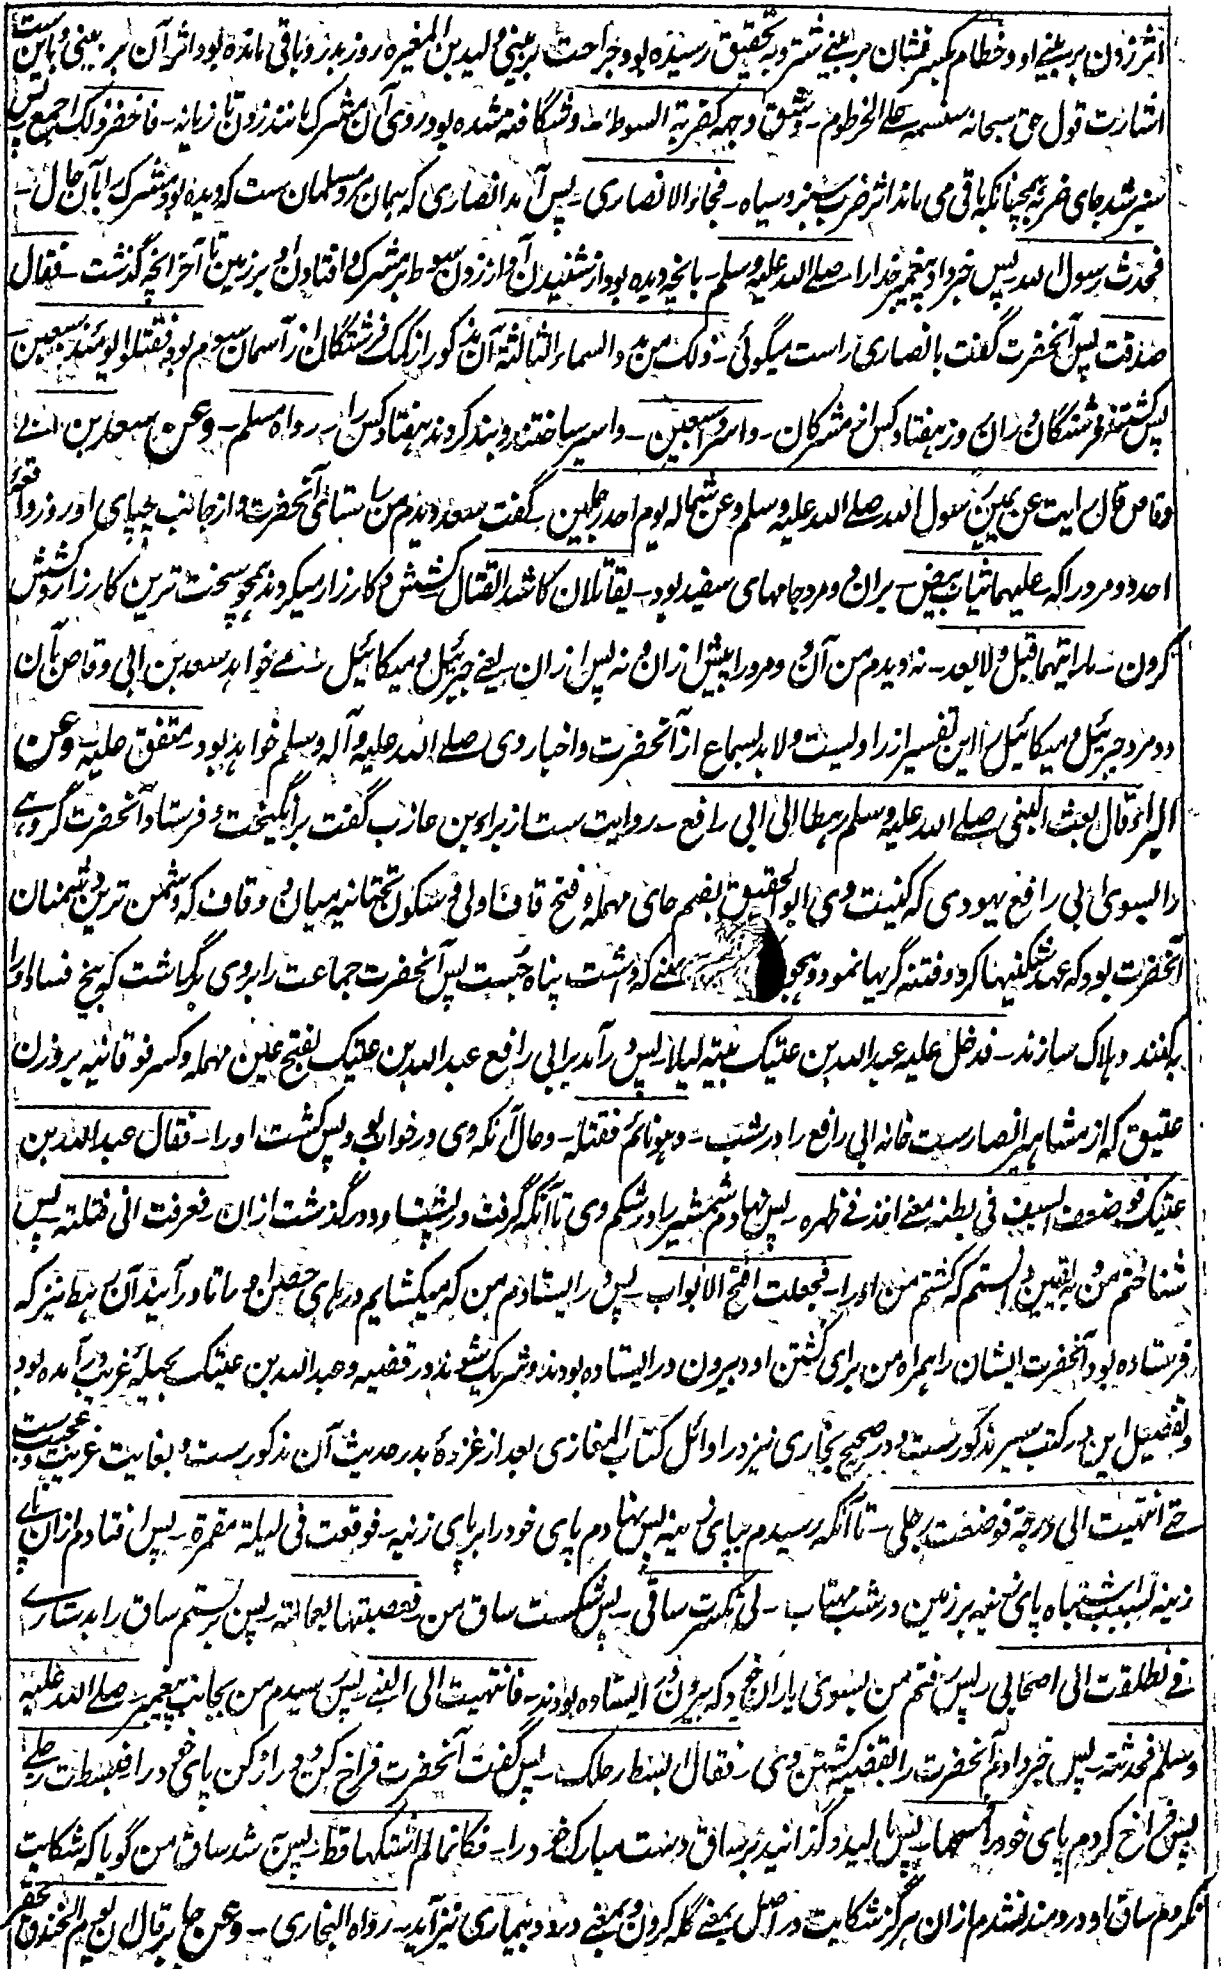 اثر زدن بر بینی او و خطام بکسر نشان بر بینی شتر و بتحقیق رسیده بود جراحت بر بینی ولید بن المغیره روز بدر و باقی مانده بود اثر آن بر بینی و باین ست
اشارت قول حق سبحانه سنسمه علی الخرطوم ـ وشق وجهه کضربة السوط ـ و شگافته شده بود روی آن مشرک مانند زدن تازیانه ـ فاخضر ذلک اجمع پس
سبز شد جای ضربه همچنانکه باقی می ماند اثر ضرب سبز و سیاه ـ فجاء الانصاری ـ پس آمد انصاری که همان مرد مسلمان ست که دیده بود مشرک را بآن حال ـ
فحدث رسول الله پس خبر داد پیغمبر خدا را صلے الله علیه وسلم ـ بانچه دیده بود از شنیدن آواز زدن سوط بر مشرک و افتادن او بر زمین تا آخر آنچه گذشت ـ فقال
صدقت پس آنحضرت گفت بانصاری راست میگوئی ـ ذلک من مدد السماء الثالثة آن مذکور از کمک فرشتگان از آسمان سوم بود فقتلوا یومئذ سبعین
پس کشتند فرشتگان دران روز هفتاد کس از مشرکان ـ واسروا سبعین ـ و اسیر ساختند و بند کردند هفتاد کس را ـ رواه مسلم ـ وعن سعد بن ابے
وقاص قال رایت عن یمین رسول الله صلے الله علیه وسلم وعن شماله یوم احد رجلین ـ گفت سعد دیدم من براستائی آنحضرت و از جانب چپای او روز واقعهٔ
احد دو مرد را که ـ علیهما ثیاب بیض ـ بران دو مرد جامهای سفید بود ـ یقاتلان کاشد القتال کشش و کارزار میکردند همچو سخت ترین کارزار و کشش
کردن ـ ما رایتهما قبل ولا بعد ـ نه دیدم من آن دو مرد را پیش ازان و نه پس ازان یعنے جبرئیل و میکائیل ـ مے خواهد سعد بن ابی وقاص بآن
دو مرد جبرئیل و میکائیل را این تفسیر از راویست و لابد بسماع از آنحضرت و اخبار وی صلے الله علیه و آله وسلم خواهد بود ـ متفق علیه ـ وعن
البراء قال بعث النبی صلے الله علیه وسلم رهطا الی ابی رافع ـ روایت ست از براء بن عازب گفت برانگیخت و فرستاد آنحضرت گروهے
را بسوی ابی رافع یهودی که کنیت وی ابو الحقیق بضم حای مهمله و فتح قاف اولی و سکون تحتانیه میان دو قاف که دشمن ترین دشمنان
آنحضرت بود که عهد شکنیها کرد و فتنه گریها نمود و هجو که داشت پناه جست پس آنحضرت جماعت را بروی برگماشت که بیخ فساد او را
بکنند و هلاک سازند ـ فدخل علیه عبدالله بن عتیک بیته لیلا ـ پس در آمد بر ابی رافع عبدالله بن عتیک بفتح عین مهمله و کسر فوقانیه بر وزن
عتیق که از مشاهیر انصارست خانه ابی رافع را در شب ـ وهو نائم فقتله ـ و حال آنکه وی در خواب بود پس کشت او را ـ فقال عبدالله بن
عتیک فوضعت السیف فی بطنه حتے اخذ فے ظهره ـ پس نهادم شمشیر را در شکم وی تا آنکه گرفت در پشت او و درگذشت ازان ـ فعرفت انی قتلته پس
شناختم من و به یقین دانستم که کشتم من او را ـ فجعلت افتح الابواب ـ پس در ایستادم من که میکشایم درهای حصن او را تا در آیند آن رهط نیز که
فرستاده بود آنحضرت ایشان را همراه من برای کشتن او و بیرون در ایستاده بودند و شریک شوند در قضیه و عبدالله بن عتیک بحیلهٔ غریب در آمده بود
و تفصیل این در کتب سیر مذکورست و در صحیح بخاری نیز در اوائل کتاب المغازی بعد از غزوهٔ بدر حدیث آن مذکورست و بغایت غریب و عجیب ست
حتے انتهیت الی درجة فوضعت رجلی ـ تا آنکه رسیدم بپای زینه پس نهادم پای خود را بر پای زینه ـ فوقعت فی لیلة مقمرة ـ پس افتادم ازان پاے
زینه بسبب اشتباه پای زینه بر زمین در شب مهتاب ـ فانکسرت ساقی ـ پس شکست ساق من ـ فعصبتها بعمامتے ـ پس بربستم ساق را بدستارے
فانطلقت الی اصحابی ـ پس رفتم من بسوی یاران خود که بیرون در ایستاده بودند ـ فانتهیت الی النبے ـ پس رسیدم من بجانب پیغمبر ـ صلے الله علیه
وسلم فحدثته ـ پس خبر دادم آنحضرت را بقضیه کشتن وی ـ فقال ابسط رجلک ـ پس گفت آنحضرت فراخ کن و دراز کن پای خود را ـ فبسطت رجلے
پس فراخ کردم پای خود را فمسحها ـ پس مالید و گذرانید بر ساق دست مبارک خود را ـ فکانما لم اشتکها قط ـ پس آن شد ساق من گویا که شکایت
نکردم ساق او دردمند نشدم ازان هرگز شکایت در اصل بمعنے گله کردن و بمعنے درد و بیماری نیز آید ـ رواه البخاری ـ وعن جابر قال انا یوم الخندق نحفر